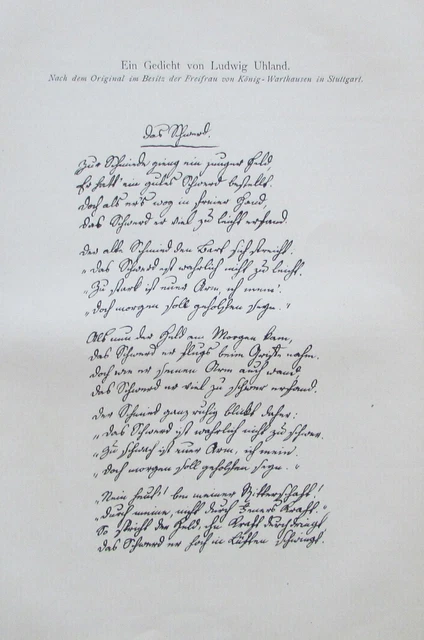 Ein Gedicht von Ludwig Uhland.
Nach dem Original im Besitz der Freifrau von König-Warthausen in Stuttgart.
Das Schwerd.
Zur Schmiede gieng ein junger Held,
Er hatt' ein gutes Schwerd bestellt.
Doch als er's wog in freier Hand,
Das Schwerd er viel zu leicht erfand.
Der alte Schmied den Bart sich streicht:
„Das Schwerd ist wahrlich nicht zu leicht.
„Zu stark ist euer Arm, ich mein'.
„Doch morgen soll geholfen seyn."
Als nun der Held am Morgen kam,
Das Schwerd er flugs beim Griffe nahm.
Doch wie er seinen Arm auch wand
Das Schwerd er viel zu schwer erfand.
Der Schmied ganz ruhig blickt daher:
„Das Schwerd ist wahrlich nicht zu schwer.
„Zu schwach ist euer Arm, ich mein.
„Doch morgen soll geholfen seyn."
„Nein heut! bei meiner Ritterschaft!
„Durch meine, nicht durch Feuers Kraft."
So spricht der Held, ihn Kraft durchdringt,
Das Schwerd er hoch in Lüften schwingt.